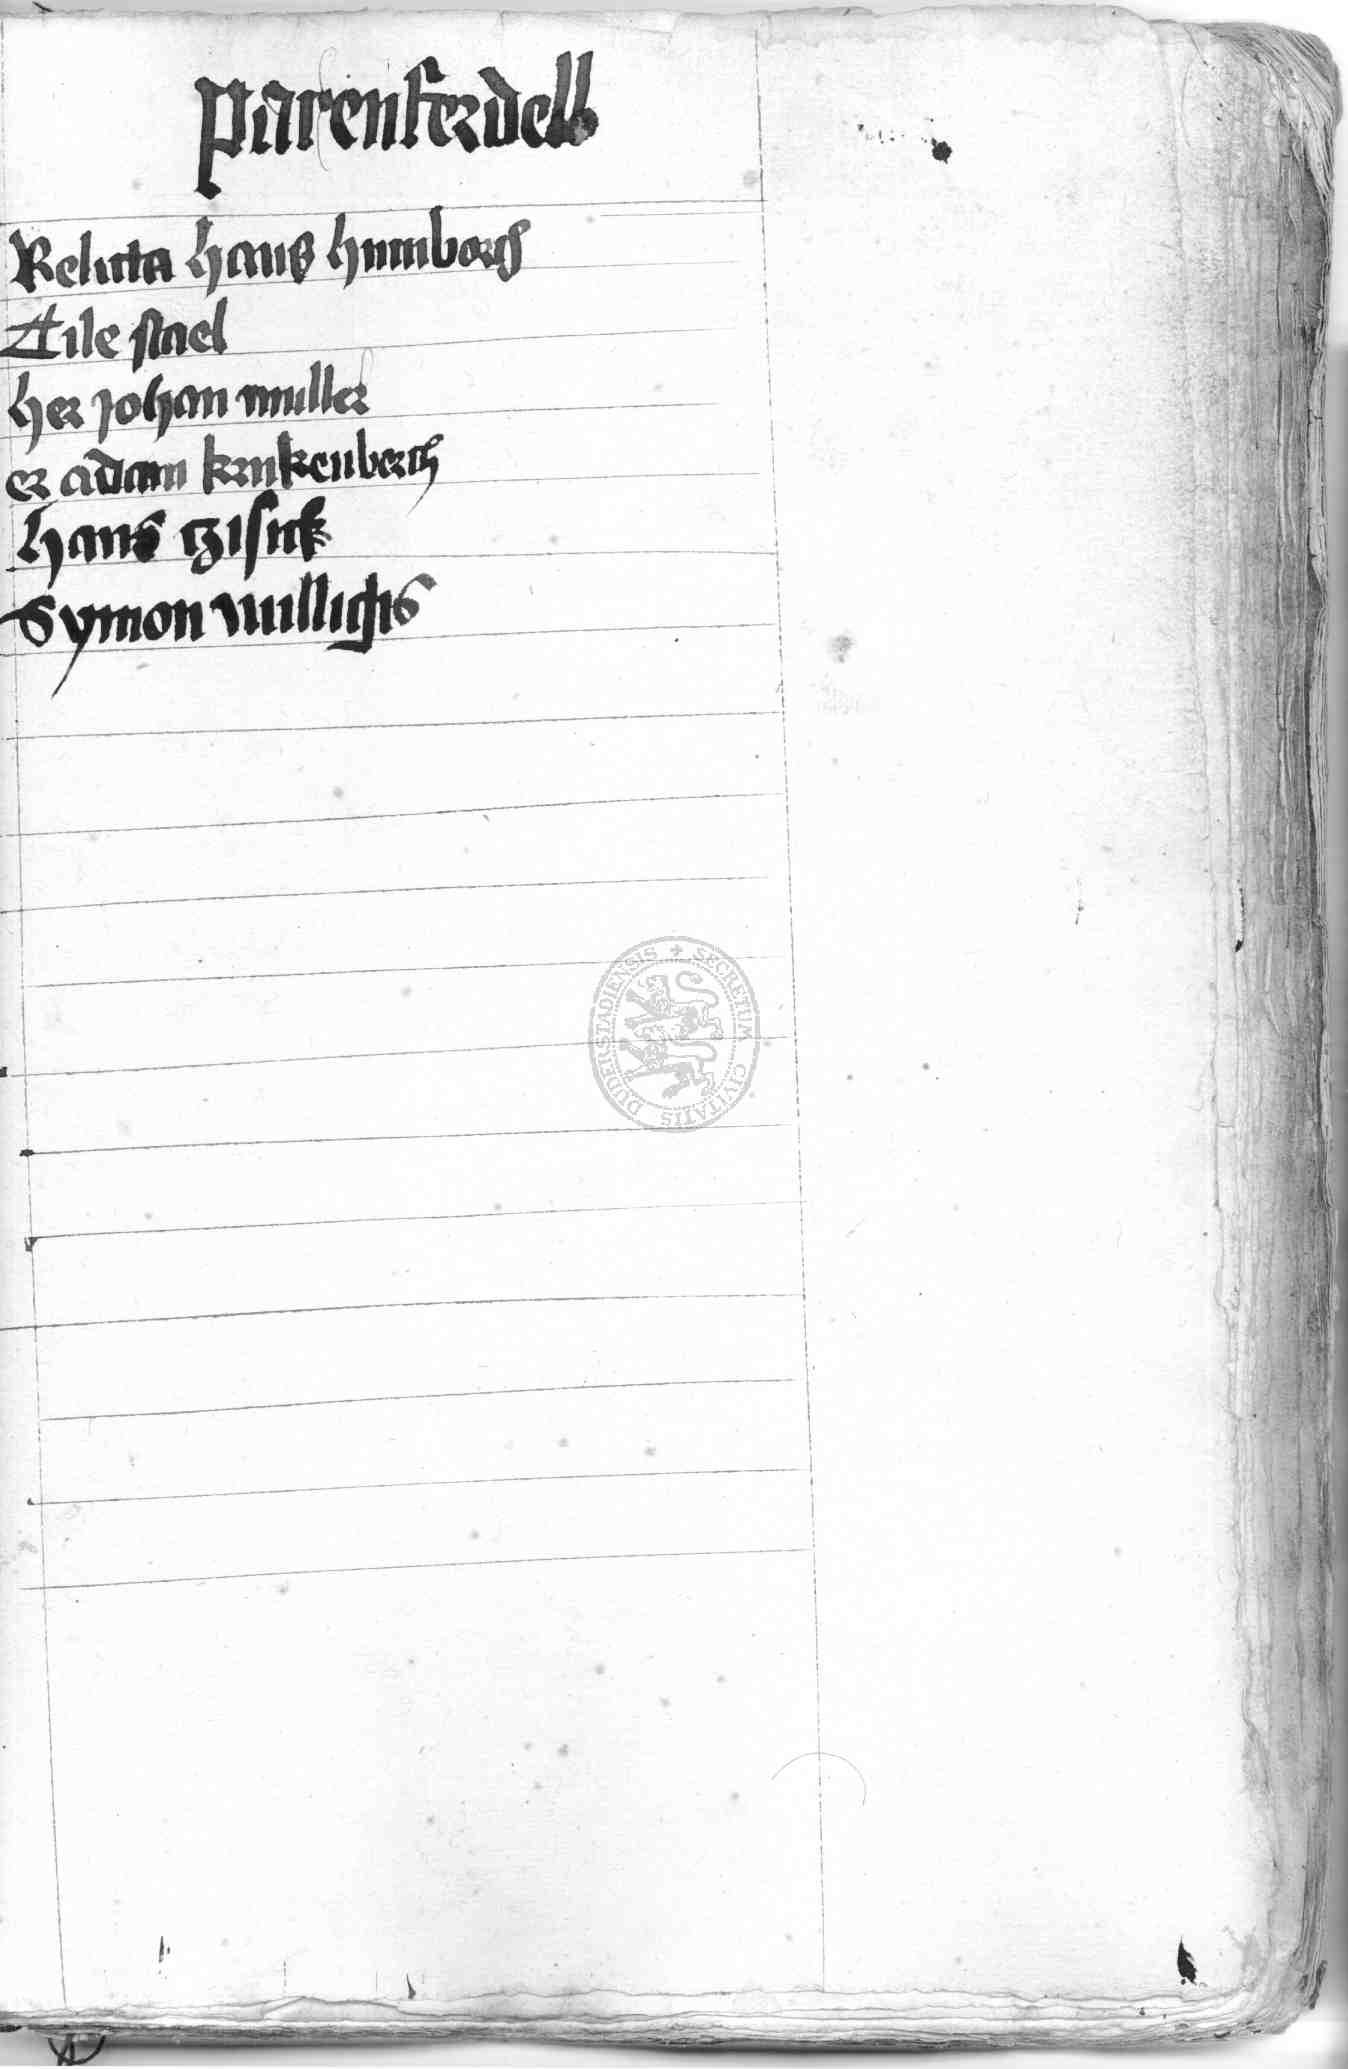 parenferdell
Relicta hans humborch
Tile stael
her johan muller
er adam krukenberch
hans tzisick
Symon willichis
SECRETUM CIVITATIS DUDERSTADIENSIS